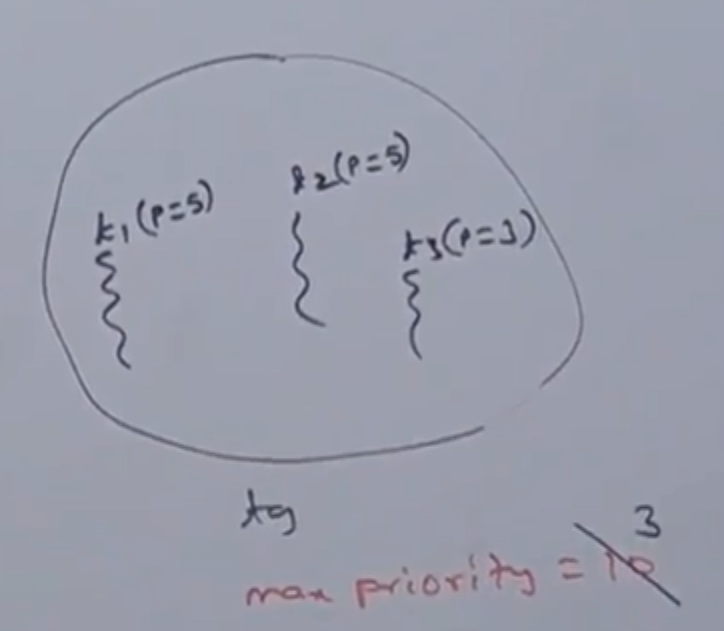 t1(P=5)
t2(P=5)
t3(P=3)
tg
3
max priority = 10